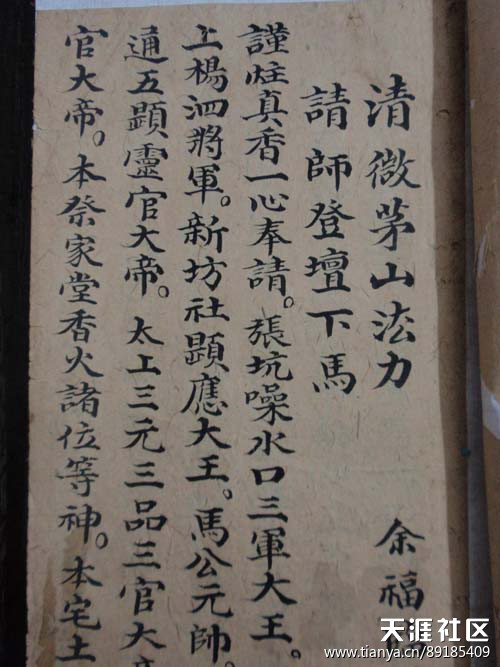 清微茅山法力 余福
請師登壇下馬
謹炷真香一心奉請。張坑噪水口三軍大王。
上楊泗將軍。新坊社顕應大王。馬公元帥。
通五顕靈官大帝。太上三元三品三官大
官大帝。本祭家堂香火諸位等神。本宅土
天涯社区
www.tianya.cn/89185409